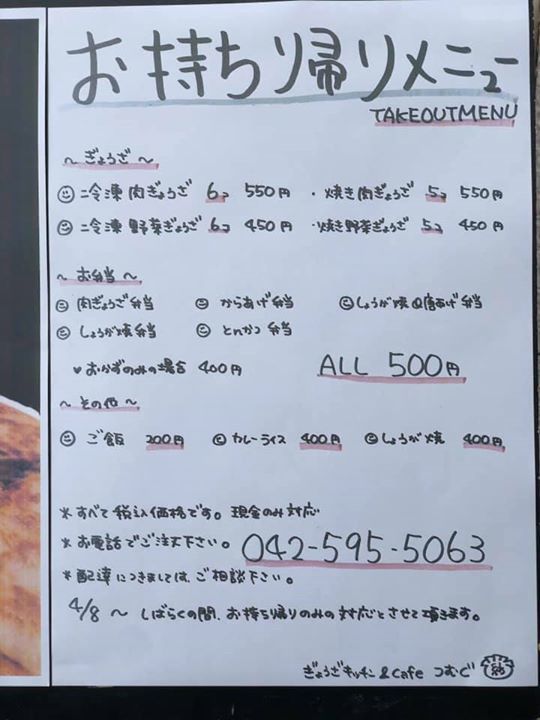 お持ち帰りメニュー
TAKEOUTMENU
~ ぎょうざ ~
冷凍 肉ぎょうざ 6コ 550円 ・焼き肉ぎょうざ 5コ 550円
冷凍 野菜ぎょうざ 6コ 450円 ・焼き野菜ぎょうざ 5コ 450円
~ お弁当 ~
肉ぎょうざ弁当 からあげ弁当 しょうが焼&唐あげ弁当
しょうが焼弁当 とんかつ弁当
♥おかずのみの場合 400円 ALL 500円
~ その他 ~
ご飯 200円 カレーライス 400円 しょうが焼 400円
*すべて税込価格です。現金のみ対応
*お電話でご注文下さい。 042-595-5063
*配達につきましては、ご相談下さい。
4/8 ~ しばらくの間、お持ち帰りのみの対応とさせて頂きます。
ぎょうざキッチン & Cafe つむぐ